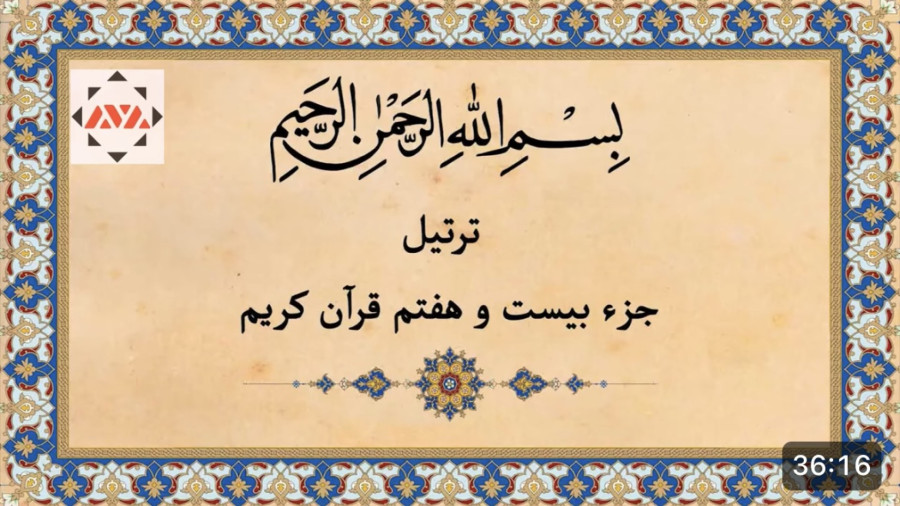 بِسْمِ اللهِ الرَّحْمٰنِ الرَّحِيمِ
ترتیل
جزء بیست و هفتم قرآن کریم
AVA
36:16